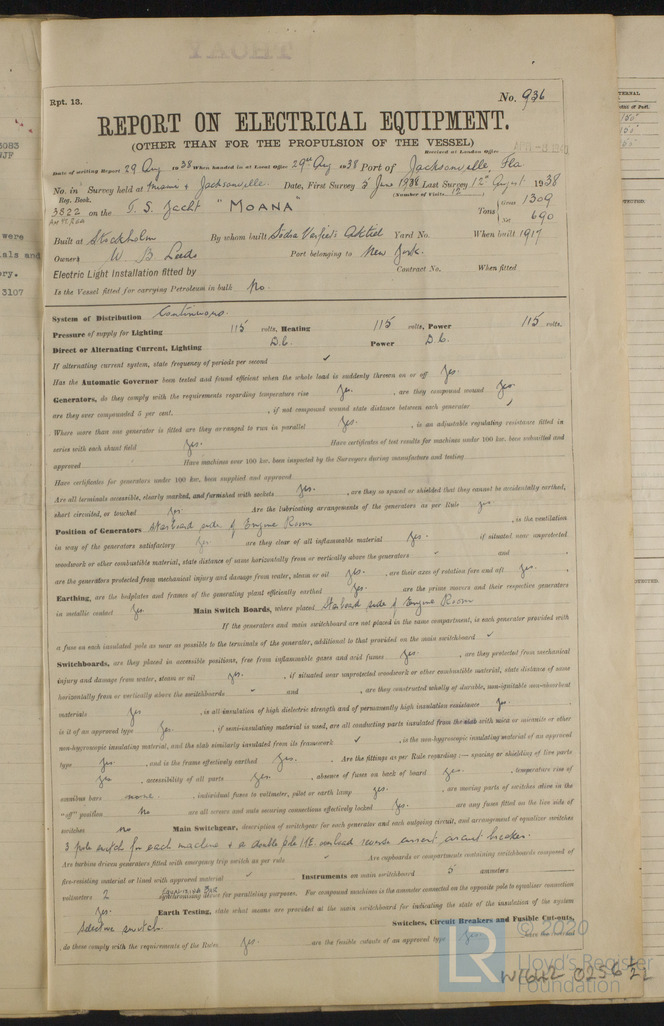 Rpt. 13.
No. 936
REPORT ON ELECTRICAL EQUIPMENT.
(OTHER THAN FOR THE PROPULSION OF THE VESSEL)
Received at London Office
Date of writing Report 29 Aug 1938 When handed in at Local Office 29th Aug 1938 Port of Jacksonville, Fla
No. in Survey held at Miami & Jacksonville. Date, First Survey 3 June 1938 Last Survey 12th August 1938
Reg. Book. (Number of Visits 12
3822 on the T. S. Yacht "MOANA" Tons { Gross 1309
Net 690
Built at Stockholm By whom built Yard No. When built 1917
Owners W. B. Leeds Port belonging to New York.
Electric Light Installation fitted by Contract No. When fitted
Is the Vessel fitted for carrying Petroleum in bulk No.
System of Distribution Continuous.
Pressure of supply for Lighting 115 volts, Heating 115 volts, Power 115 volts.
Direct or Alternating Current, Lighting D.C. Power D.C.
If alternating current system, state frequency of periods per second ✓
Has the Automatic Governor been tested and found efficient when the whole load is suddenly thrown on or off Yes.
Generators, do they comply with the requirements regarding temperature rise Yes. , are they compound wound Yes.
are they over compounded 5 per cent. , if not compound wound state distance between each generator ✓
Where more than one generator is fitted are they arranged to run in parallel Yes. , is an adjustable regulating resistance fitted in
series with each shunt field Yes. Have certificates of test results for machines under 100 kw. been submitted and
approved Have machines over 100 kw. been inspected by the Surveyors during manufacture and testing
Have certificates for generators under 100 kw. been supplied and approved
Are all terminals accessible, clearly marked, and furnished with sockets Yes. , are they so spaced or shielded that they cannot be accidentally earthed,
short circuited, or touched Yes. Are the lubricating arrangements of the generators as per Rule Yes.
Position of Generators Starboard side of Engine Room , is the ventilation
in way of the generators satisfactory Yes are they clear of all inflammable material Yes. , if situated near unprotected
woodwork or other combustible material, state distance of same horizontally from or vertically above the generators " and
are the generators protected from mechanical injury and damage from water, steam or oil Yes. , are their axes of rotation fore and aft Yes.
Earthing, are the bedplates and frames of the generating plant efficiently earthed Yes. are the prime movers and their respective generators
in metallic contact Yes Main Switch Boards, where placed Starboard side of Engine Room
If the generators and main switchboard are not placed in the same compartment, is each generator provided with
a fuse on each insulated pole as near as possible to the terminals of the generator, additional to that provided on the main switchboard ✓
Switchboards, are they placed in accessible positions, free from inflammable gases and acid fumes Yes. , are they protected from mechanical
injury and damage from water, steam or oil Yes. , if situated near unprotected woodwork or other combustible material, state distance of same
horizontally from or vertically above the switchboards " and , are they constructed wholly of durable, non-ignitable non-absorbent
materials Yes , is all insulation of high dielectric strength and of permanently high insulation resistance Yes.
is it of an approved type Yes. , if semi-insulating material is used, are all conducting parts insulated from the slab with mica or micanite or other
non-hygroscopic insulating material, and the slab similarly insulated from its framework ✓ , is the non-hygroscopic insulating material of an approved
type Yes. , and is the frame effectively earthed Yes. . Are the fittings as per Rule regarding :— spacing or shielding of live parts
Yes , accessibility of all parts Yes. , absence of fuses on back of board Yes. , temperature rise of
omnibus bars none. , individual fuses to voltmeter, pilot or earth lamp Yes. , are moving parts of switches alive in the
"off" position No are all screws and nuts securing connections effectively locked Yes. are any fuses fitted on the live side of
switches No Main Switchgear, description of switchgear for each generator and each outgoing circuit, and arrangement of equalizer switches
3 pole switch for each machine & a double pole I.t.l. overload reverse current circuit breaker.
Are turbine driven generators fitted with emergency trip switch as per rule ✓ Are cupboards or compartments containing switchboards composed of
fire-resisting material or lined with approved material ✓ Instruments on main switchboard 5 ammeters
voltmeters 2 synchronising device for paralleling purposes. For compound machines is the ammeter connected on the opposite pole to equalizer connection
Yes. Earth Testing, state what means are provided at the main switchboard for indicating the state of the insulation of the system
Selective switch. Switches, Circuit Breakers and Fusible Cut-outs,
do these comply with the requirements of the Rules Yes. are the fusible cutouts of an approved type Yes.
© 2020
LR Lloyd's Register
Foundation
W1642 0256 1/2